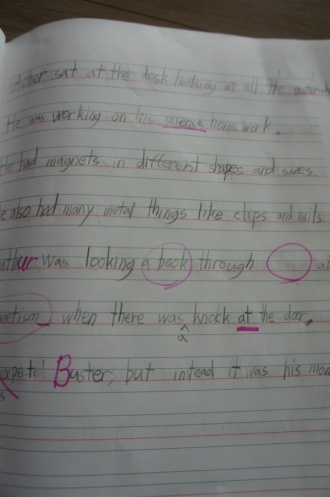 sat at the desk looking at all the
He was working on his science home work.
He had magnets in different shapes and sizes
also had many metal things like clips and nails
was looking a book through
when there was knock at the door.
a
Buster, but intead it was his mom